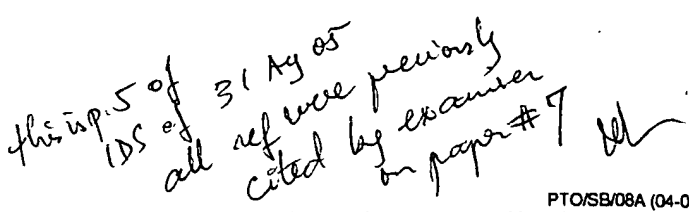 this is p. 5 of
IDS of 31 Ag 05
all ref were previously
cited by examiner
on paper # 7
PTO/SB/08A (04-0